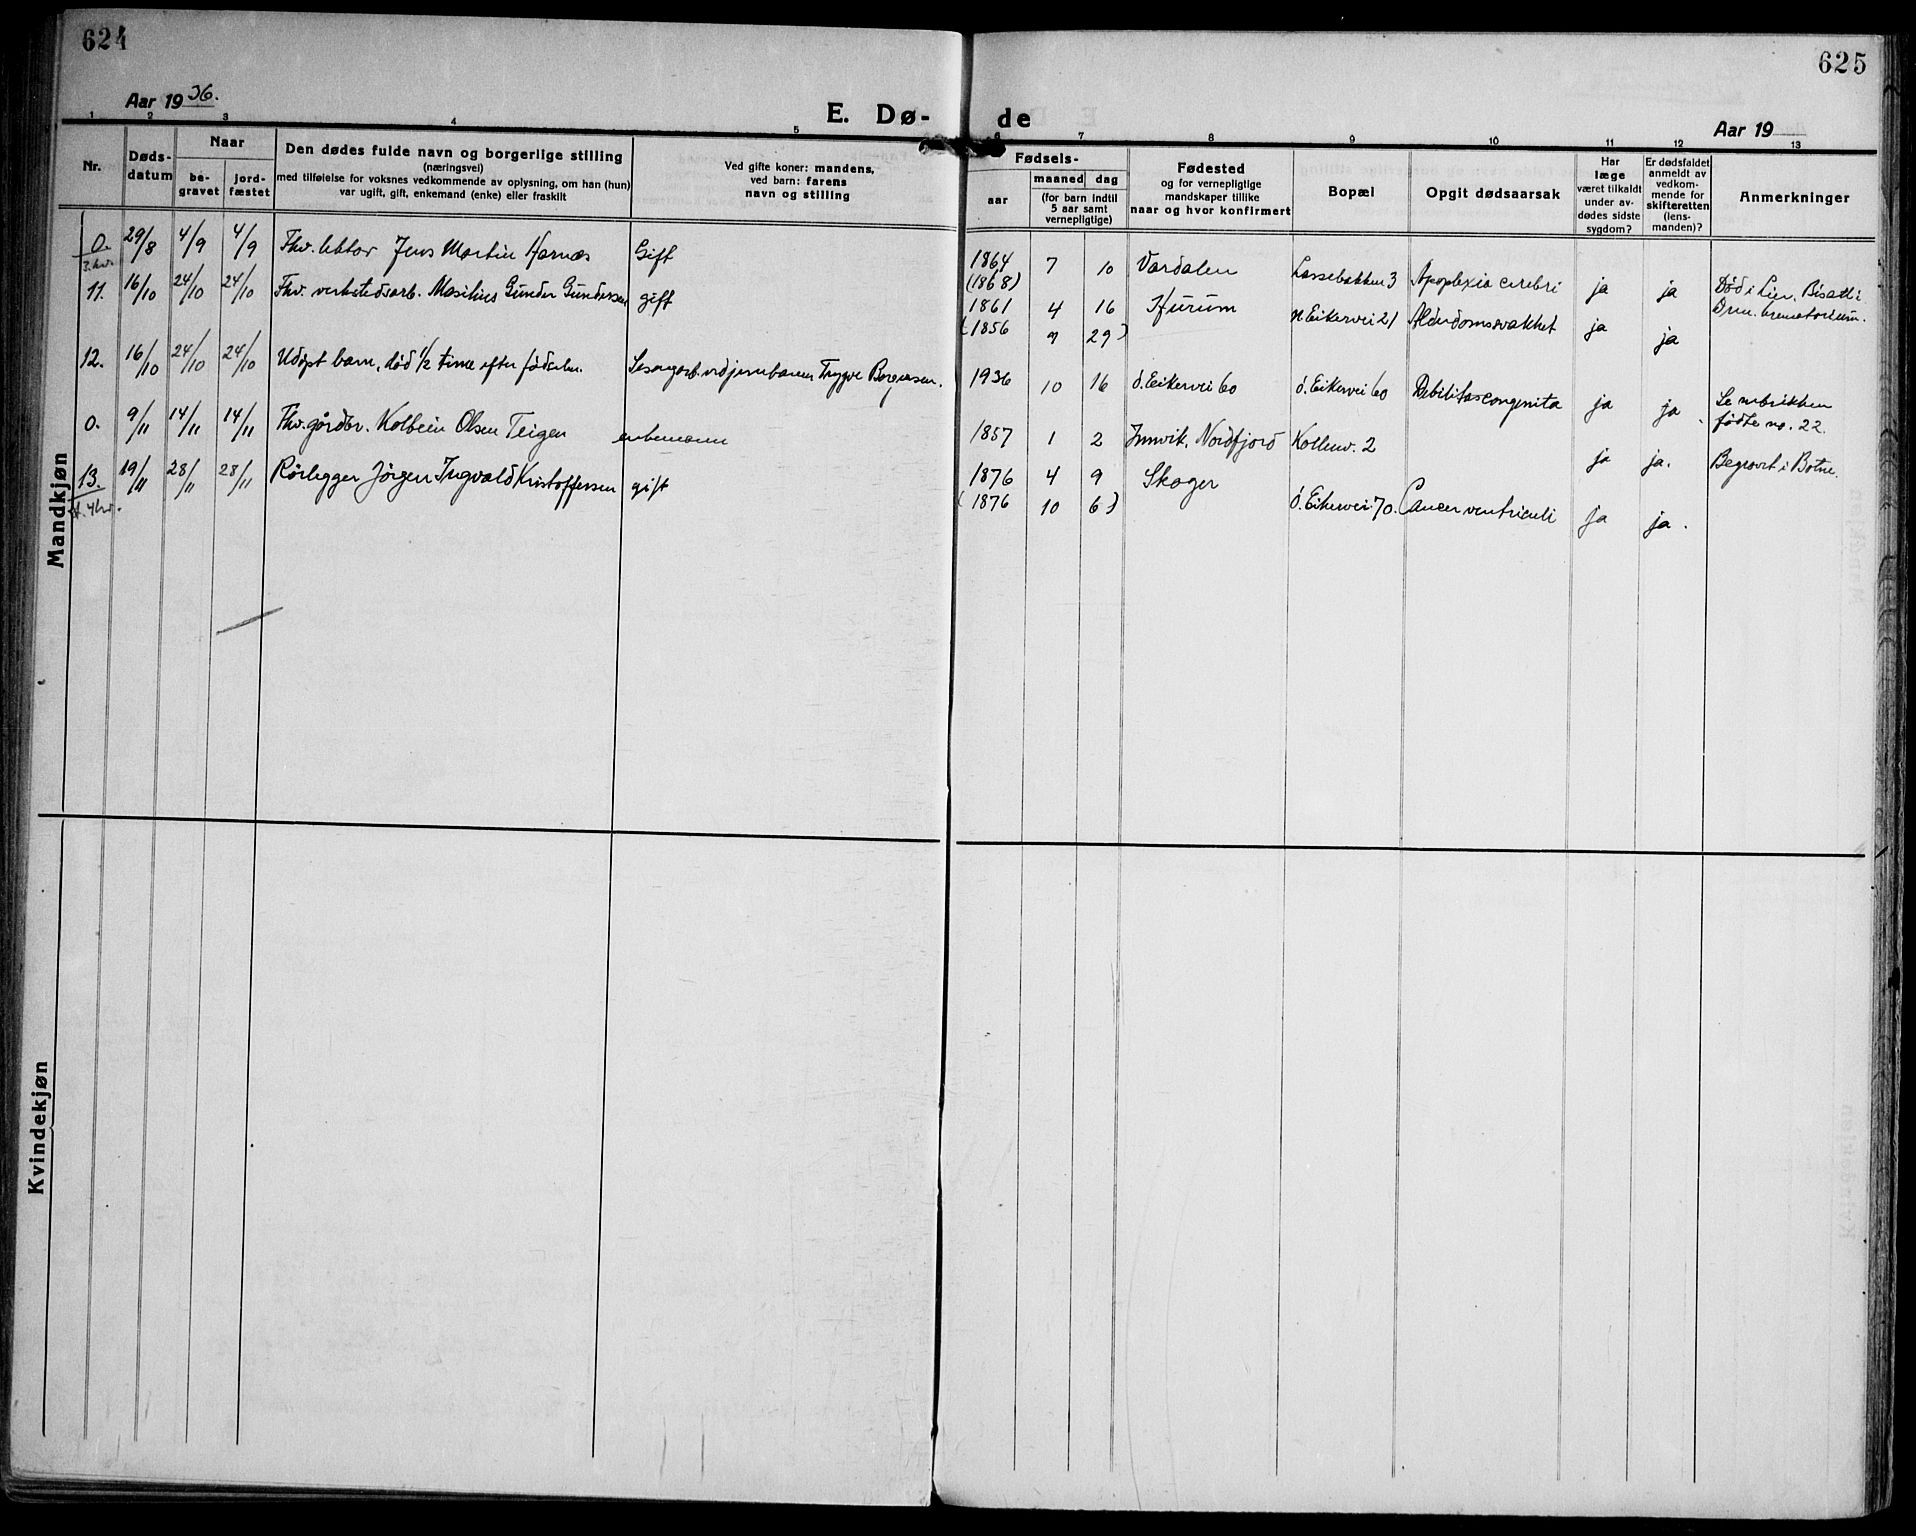 624
625
Aar 1936.
E. Dø-
de
Aar 19
1 2 3 4 5 6 7 8 9 10 11 12 13
Nr.
Døds-
datum
Naar
be-
gravet
jord-
fæstet
Den dødes fulde navn og borgerlige stilling
(næringsvei)
med tilføielse for voksnes vedkommende av oplysning, om han (hun)
var ugift, gift, enkemand (enke) eller fraskilt
Ved gifte koner: mandens,
ved barn: farens
navn og stilling
Fødsels-
aar
maaned dag
(for barn indtil
5 aar samt
vernepligtige)
Fødested
og for vernepligtige
mandskaper tillike
naar og hvor konfirmert
Bopæl
Opgit dødsaarsak
Har
læge
været tilkaldt
under av-
dødes sidste
sygdom?
Er dødsfaldet
anmeldt av
vedkom-
mende for
skifteretten
(lens-
manden)?
Anmerkninger
Mandkjøn
0. 29/8 4/9 4/9 Fhv. lektor Jens Martin Harnæs Gift 1864 7 10 Vardalen Lassebakken 3 Apoplexia cerebri ja ja Død i Lier. Bisatt i
3. kv.
(1868) Drm. krematorium.
11. 16/10 24/10 24/10 Fhv. verkstedsarb. Masilius Gunder Gundersen gift 1861 4 16 Hurum n Eikervei 21 Alderdomssvakhet ja ja
(1856 9 29)
12. 16/10 24/10 24/10 Udøpt barn, død 1/2 time efter fødselen. Sesongarb. ved jernbanen Trygve Borgersen. 1936 10 16 ö. Eikervei 60 ö. Eikervei 60 Debilitas congenita ja ja. Se rubrikken
fødte no. 22.
0. 9/11 14/11 14/11 Fhv. gårdbr. Kolbein Olsen Teigen enkemann 1857 1 2 Innvik, Nordfjord Kollenv. 2 ja ja. Begravet i Botne.
13. 19/11 28/11 28/11 Rørlegger Jörgen Ingvald Kristoffersen gift 1876 4 9 Skoger ö. Eikervei 70. Cancer ventriculi ja ja.
4 kv.
(1876 10 6)
Kvindekjøn